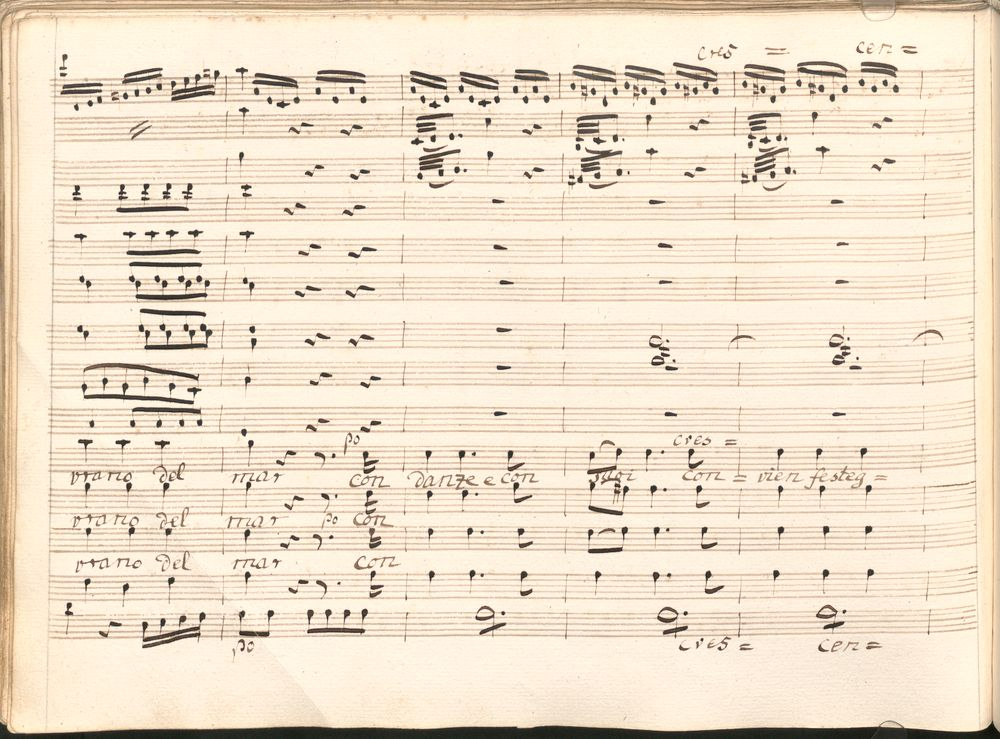 cres = cen =
po cres =
vrano del mar con danze e con suoi con = vien festeg =
vrano del mar po con
vrano del mar con
po cres = cen =